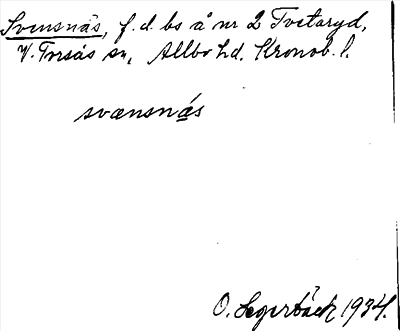 Svensnäs, f.d. bs å nr 2 Tvetaryd,
V. Torsås sn, Allbo hd. Kronob. l.
svænsnás
O. Segerbäck 1934.